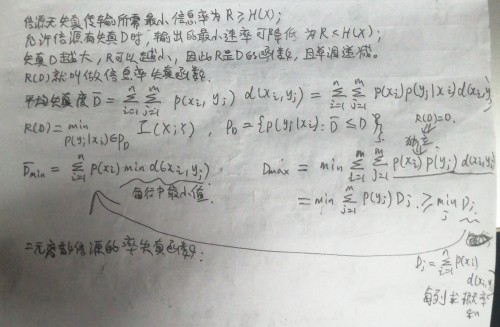 信源无失真传输所需最小信息率为 R≥H(X);
允许信源有失真D时,输出的最小速率可降低为 R<H(X);
失真D越大,R可以越小,因此R是D的函数,且单调递减。
R(D)就叫做信息率失真函数。
平均失真度 D̄ = Σ_{i=1}^{n} Σ_{j=1}^{m} p(xi, yj) d(xi, yj) = Σ_{i=1}^{n} Σ_{j=1}^{m} p(xi) p(yj|xi) d(xi, yj)
R(D) = min_{p(yj|xi)∈PD} I(X;Y), PD = {p(yj|xi): D̄ ≤ D} R(D)=0.
D̄min = Σ_{i=1}^{n} p(xi) min d(xi, yj) Dmax = min Σ Σ_{j=1}^{m} p(xi) p(yj) d(xi, yj)
每行中最小值. = min Σ_{j=1}^{m} p(yj) Dj ≥ min_j Dj
二元离散信源的率失真函数:
Dj = Σ_{i=1}^{n} p(xi)
d(xi, yj)
每列求
和